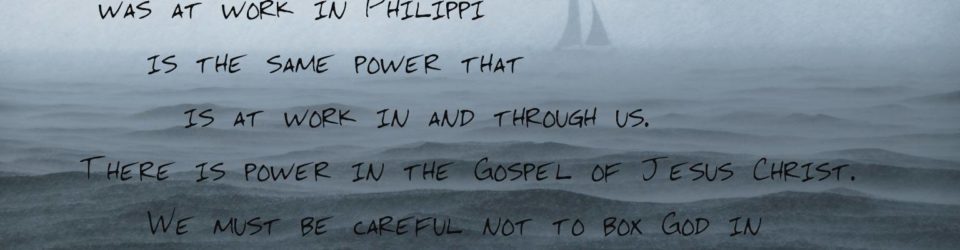 was at work in Philippi
is the same power that
is at work in and through us.
There is power in the Gospel of Jesus Christ.
We must be careful not to box God in